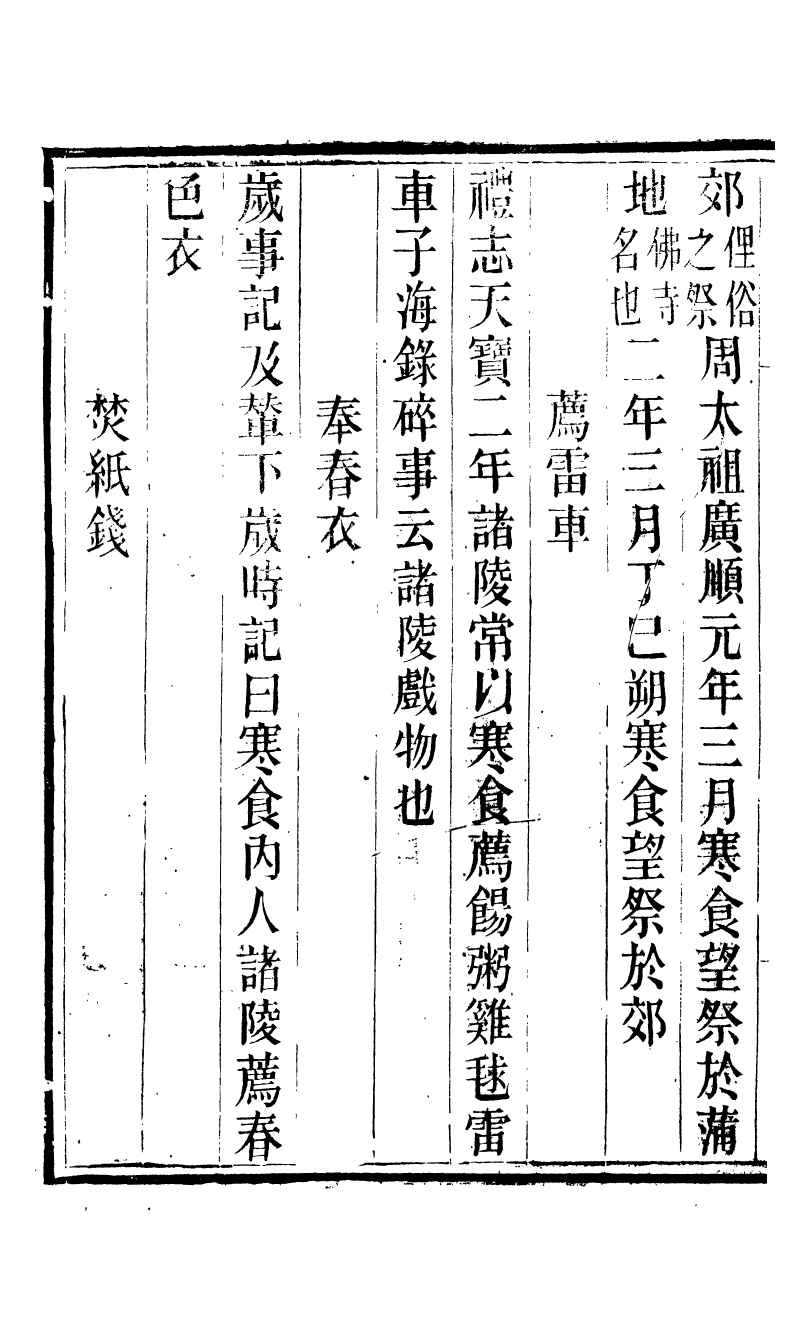 郊俚俗之祭周太祖廣順元年三月寒食望祭於蒲
地佛寺名也二年三月丁巳朔寒食望祭於郊
薦雷車
禮志天寶二年諸陵常以寒食薦餳粥雞毬雷
車子海錄碎事云諸陵戲物也
奉春衣
歲事記及輦下歲時記曰寒食內人諸陵薦春
色衣
焚紙錢